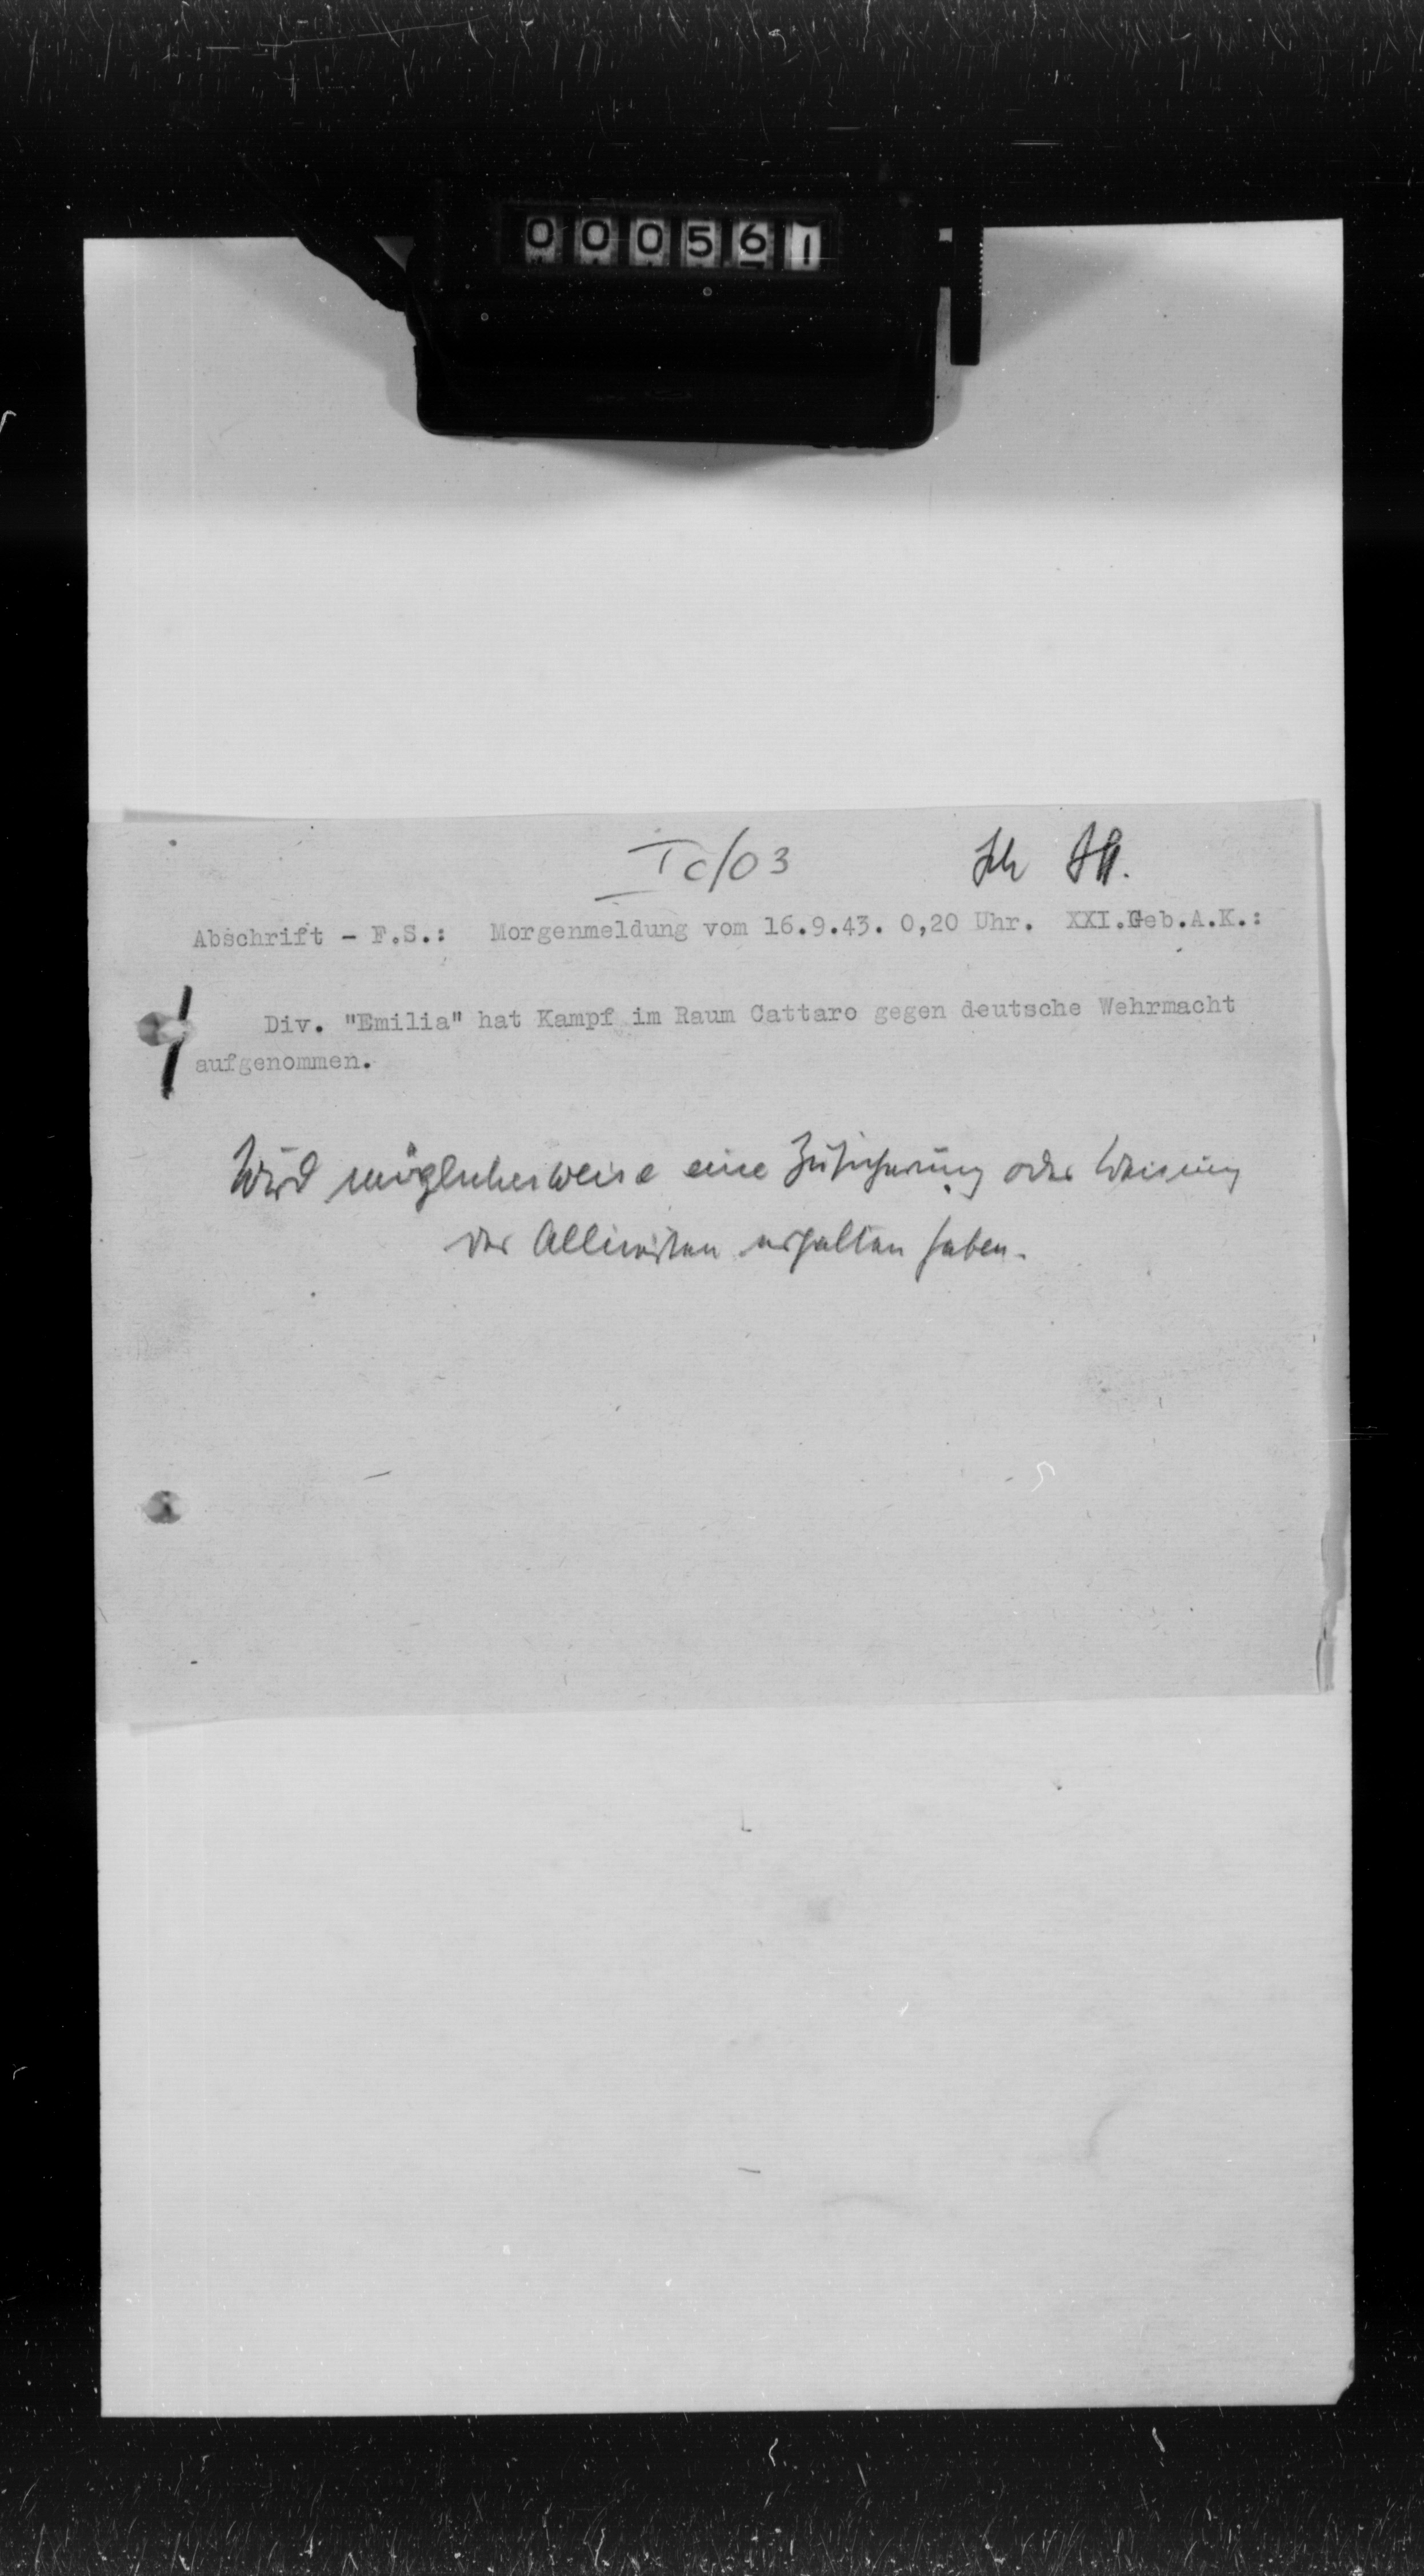 000561
Ic/03
Abschrift - F.S.: Morgenmeldung vom 16.9.43. 0,20 Uhr. XXI.Geb.A.K.:
Div. "Emilia" hat Kampf im Raum Cattaro gegen deutsche Wehrmacht
aufgenommen.
Wird möglicherweise eine Zusicherung oder Weisung
der Alliierten erhalten haben.